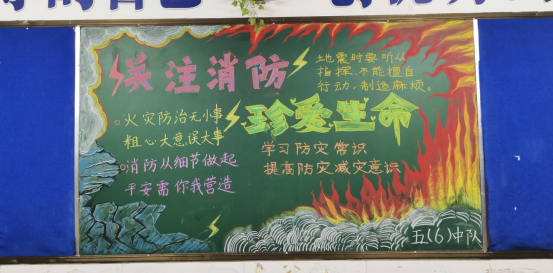 关注消防
地震时要听从
指挥,不能擅自
行动,制造麻烦。
火灾防治无小事
粗心大意误大事
珍爱生命
消防从细节做起
平安需你我营造
学习防灾常识
提高防灾减灾意识
五(6)中队